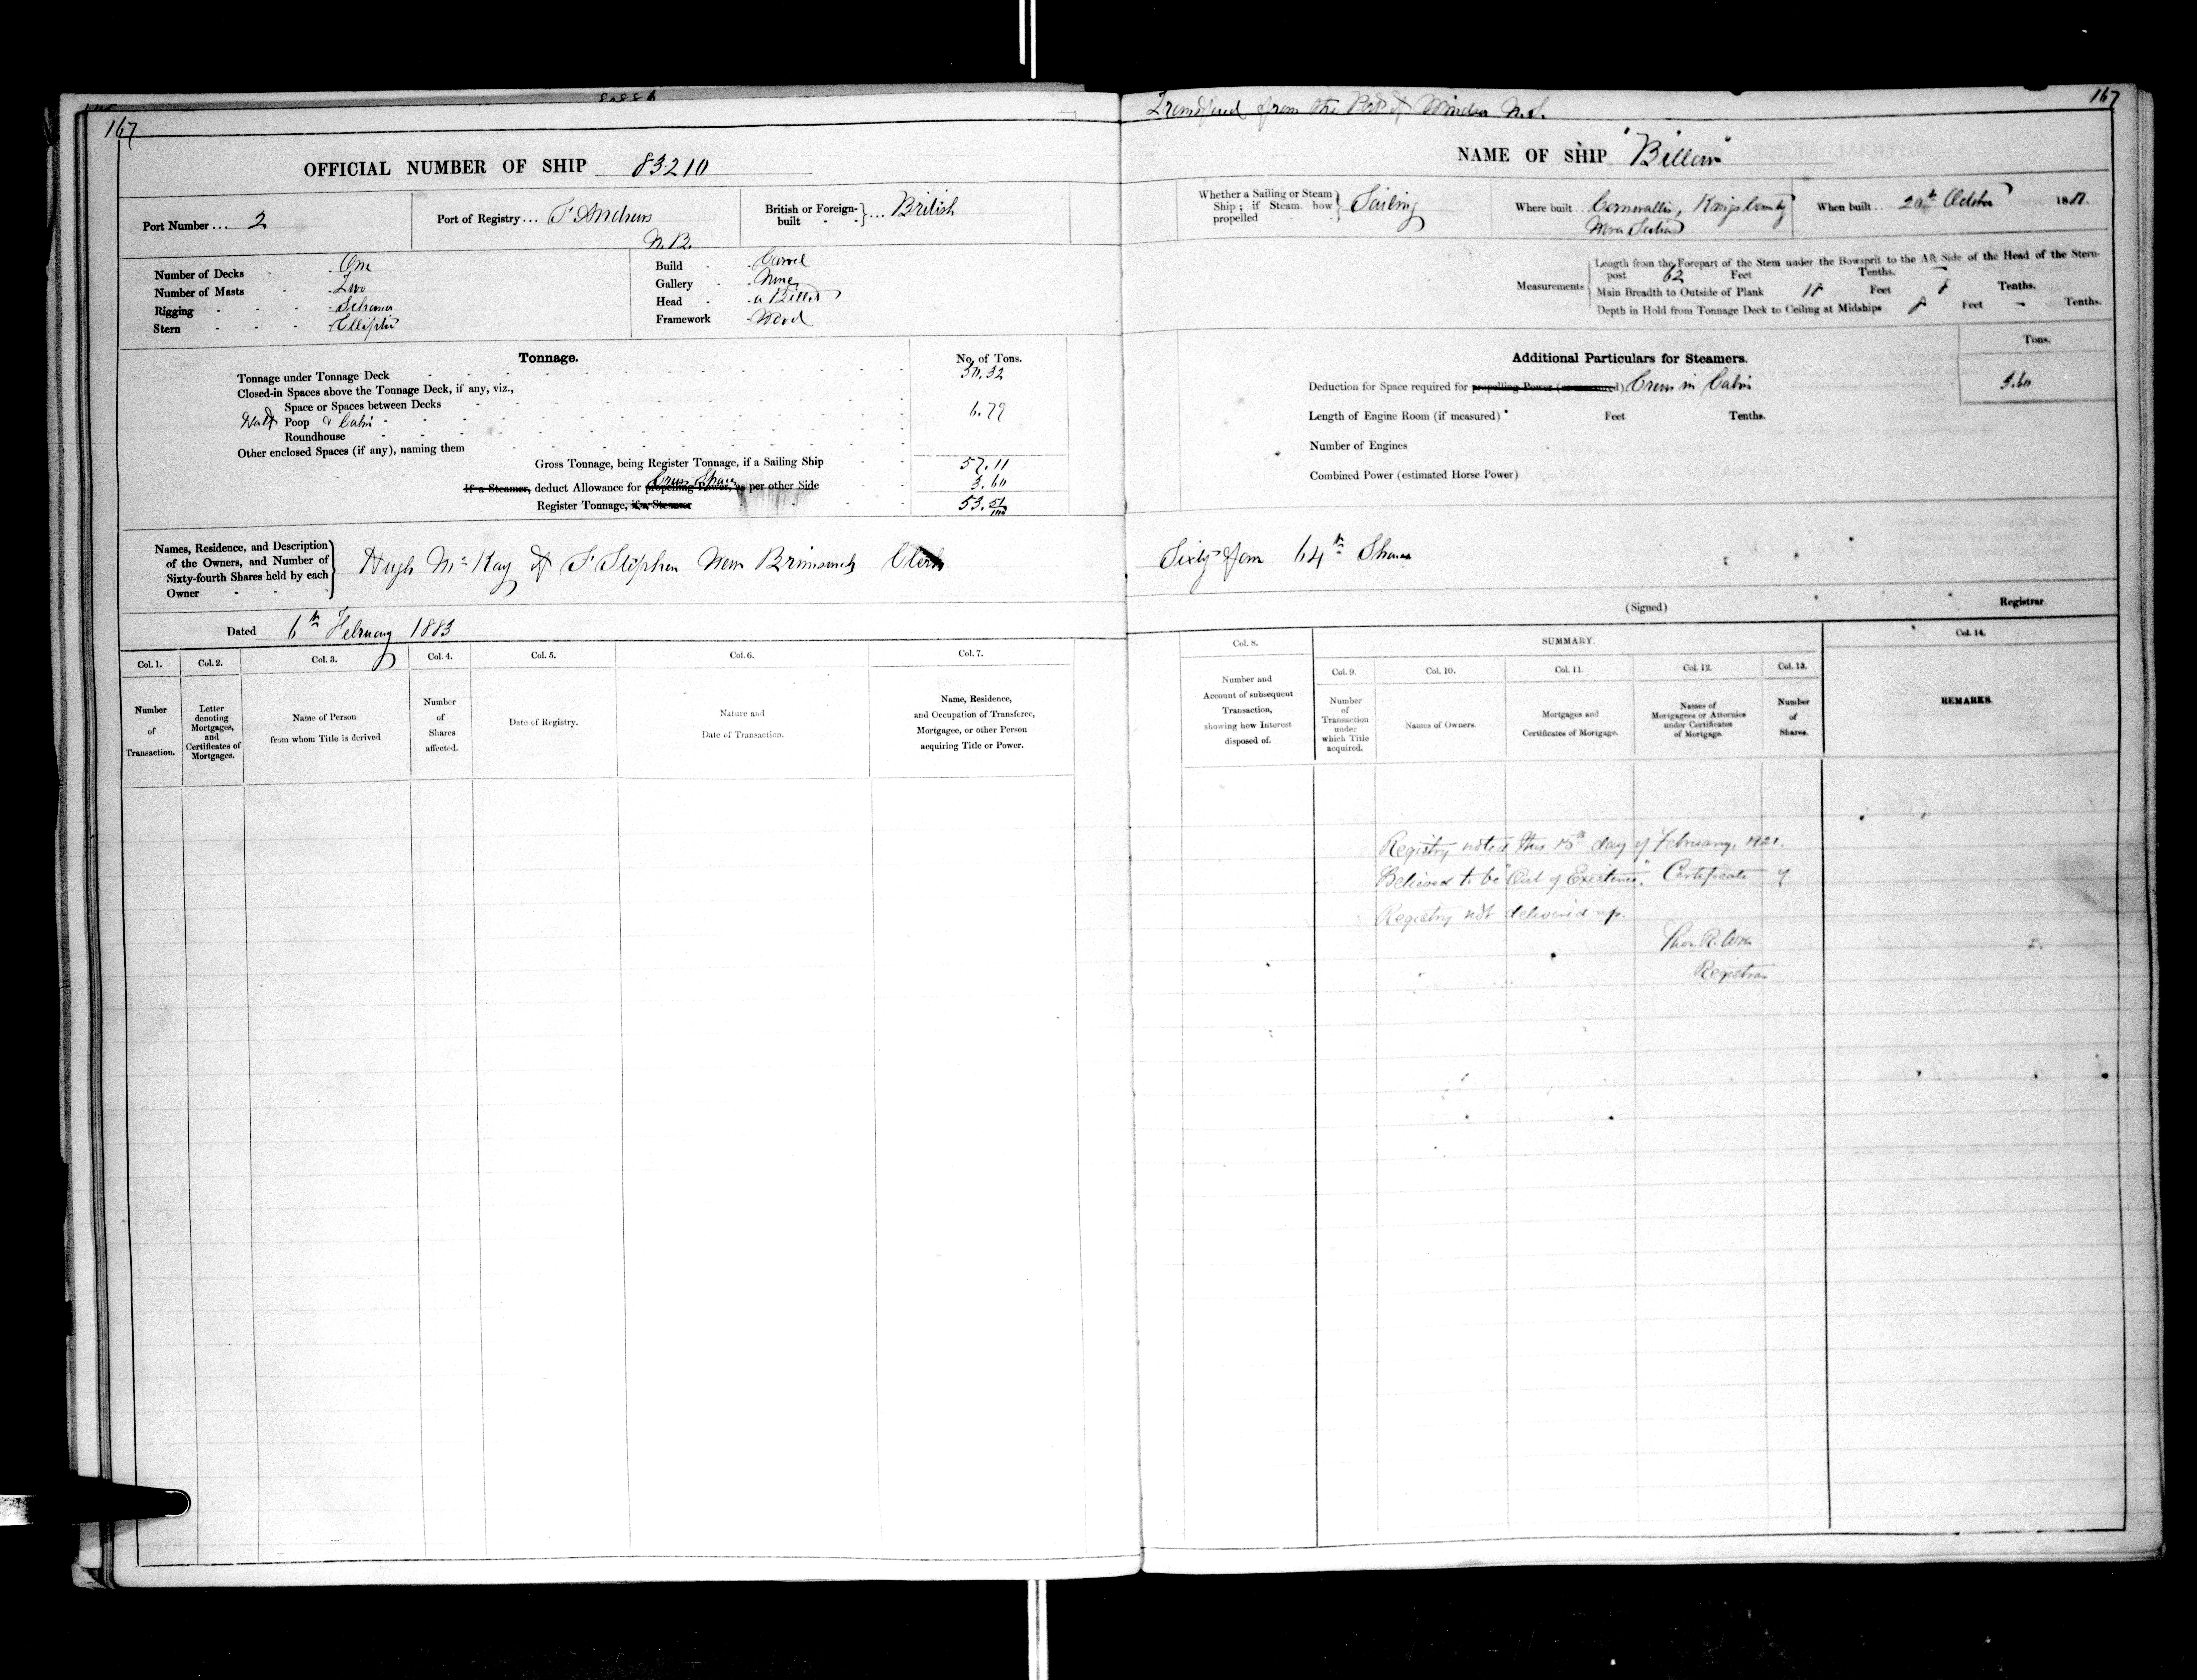 167
OFFICIAL NUMBER OF SHIP 83210
Port Number ... 2
Port of Registry ... St Andrews
N.B.
British or Foreign-built ... British
Number of Decks - One
Number of Masts - Two
Rigging - Schooner
Stern - Elliptic
Build - Carvel
Gallery - None
Head - a Billet
Framework - Wood
Tonnage.
No. of Tons.
Tonnage under Tonnage Deck 50.32
Closed-in Spaces above the Tonnage Deck, if any, viz.,
Space or Spaces between Decks
Half Poop & Cabin 6.79
Roundhouse
Other enclosed Spaces (if any), naming them
Gross Tonnage, being Register Tonnage, if a Sailing Ship 57.11
If a Steamer, deduct Allowance for propelling Power, as per other Side Crew Space 3.60
Register Tonnage, if a Steamer 53.51/100
Names, Residence, and Description
of the Owners, and Number of
Sixty-fourth Shares held by each
Owner
Hugh McKay of St Stephen New Brunswick Clerk
Dated 6th February 1883
Col. 1.
Col. 2.
Col. 3.
Col. 4.
Col. 5.
Col. 6.
Col. 7.
Number
of
Transaction.
Letter
denoting
Mortgages,
and
Certificates of
Mortgages.
Name of Person
from whom Title is derived
Number
of
Shares
affected.
Date of Registry.
Nature and
Date of Transaction.
Name, Residence,
and Occupation of Transferee,
Mortgagee, or other Person
acquiring Title or Power.
Transferred from the Port of Windsor N.S.
167
NAME OF SHIP "Billow"
Whether a Sailing or Steam
Ship; if Steam how
propelled
Sailing
Where built .. Cornwallis, Kings County
Nova Scotia
When built .. 20th October 188
Measurements
Length from the Forepart of the Stem under the Bowsprit to the Aft Side of the Head of the Stern-
post 62 Feet - Tenths.
Main Breadth to Outside of Plank 18 Feet 8 Tenths.
Depth in Hold from Tonnage Deck to Ceiling at Midships 8 Feet - Tenths.
Additional Particulars for Steamers.
Tons.
Deduction for Space required for propelling Power (as measured) Crew in Cabin 3.60
Length of Engine Room (if measured) Feet Tenths.
Number of Engines
Combined Power (estimated Horse Power)
Sixty four 64th Shares
(Signed) Registrar
Col. 8.
SUMMARY.
Col. 14.
Col. 9.
Col. 10.
Col. 11.
Col. 12.
Col. 13.
Number and
Account of subsequent
Transaction,
showing how Interest
disposed of.
Number
of
Transaction
under
which Title
acquired.
Names of Owners.
Mortgages and
Certificates of Mortgage.
Names of
Mortgagees or Attornies
under Certificates
of Mortgage.
Number
of
Shares.
REMARKS.
Registry noted this 15th day of February, 1921.
Believed to be "Out of Existence". Certificate of
Registry not delivered up.
Thos. R. Wren
Registrar